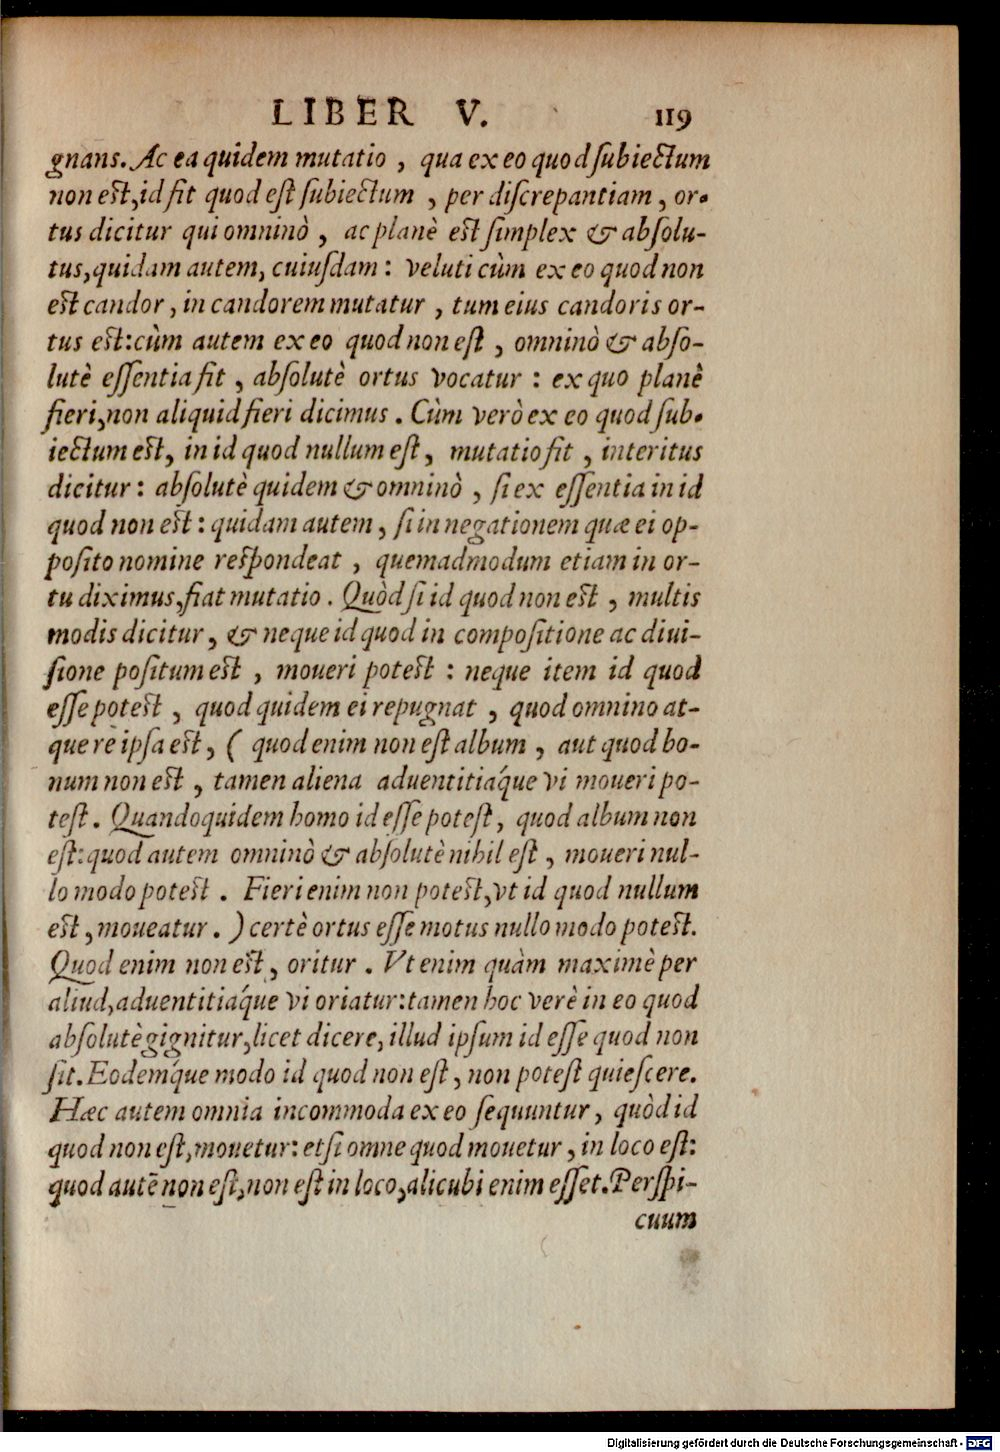 LIBER V. 119
gnans. Ac ea quidem mutatio, qua ex eo quod ſubiectum
non eſt, id fit quod eſt ſubiectum, per diſcrepantiam, or-
tus dicitur qui omninò, ac planè eſt ſimplex & abſolu-
tus, quidam autem, cuiuſdam: veluti cùm ex eo quod non
eſt candor, in candorem mutatur, tum eius candoris or-
tus eſt: cùm autem ex eo quod non eſt, omninò & abſo-
lutè eſſentia fit, abſolutè ortus vocatur: ex quo planè
fieri, non aliquid fieri dicimus. Cùm verò ex eo quod ſub-
iectum eſt, in id quod nullum eſt, mutatio fit, interitus
dicitur: abſolutè quidem & omninò, ſi ex eſſentia in id
quod non eſt: quidam autem, ſi in negationem quæ ei op-
poſito nomine reſpondeat, quemadmodum etiam in or-
tu diximus, fiat mutatio. Quòd ſi id quod non eſt, multis
modis dicitur, & neque id quod in compoſitione ac diui-
ſione poſitum eſt, moueri poteſt: neque item id quod
eſſe poteſt, quod quidem ei repugnat, quod omnino at-
que re ipſa eſt, (quod enim non eſt album, aut quod bo-
num non eſt, tamen aliena aduentitiáque vi moueri po-
teſt. Quandoquidem homo id eſſe poteſt, quod album non
eſt: quod autem omninò & abſolutè nihil eſt, moueri nul-
lo modo poteſt. Fieri enim non poteſt, vt id quod nullum
eſt, moueatur.) certè ortus eſſe motus nullo modo poteſt.
Quod enim non eſt, oritur. Vt enim quàm maximè per
aliud, aduentitiáque vi oriatur: tamen hoc verè in eo quod
abſolutè gignitur, licet dicere, illud ipſum id eſſe quod non
ſit. Eodémque modo id quod non eſt, non poteſt quieſcere.
Hæc autem omnia incommoda ex eo ſequuntur, quòd id
quod non eſt, mouetur: etſi omne quod mouetur, in loco eſt:
quod autē non eſt, non eſt in loco, alicubi enim eſſet. Perſpi-
cuum
Digitalisierung gefördert durch die Deutsche Forschungsgemeinschaft - DFG